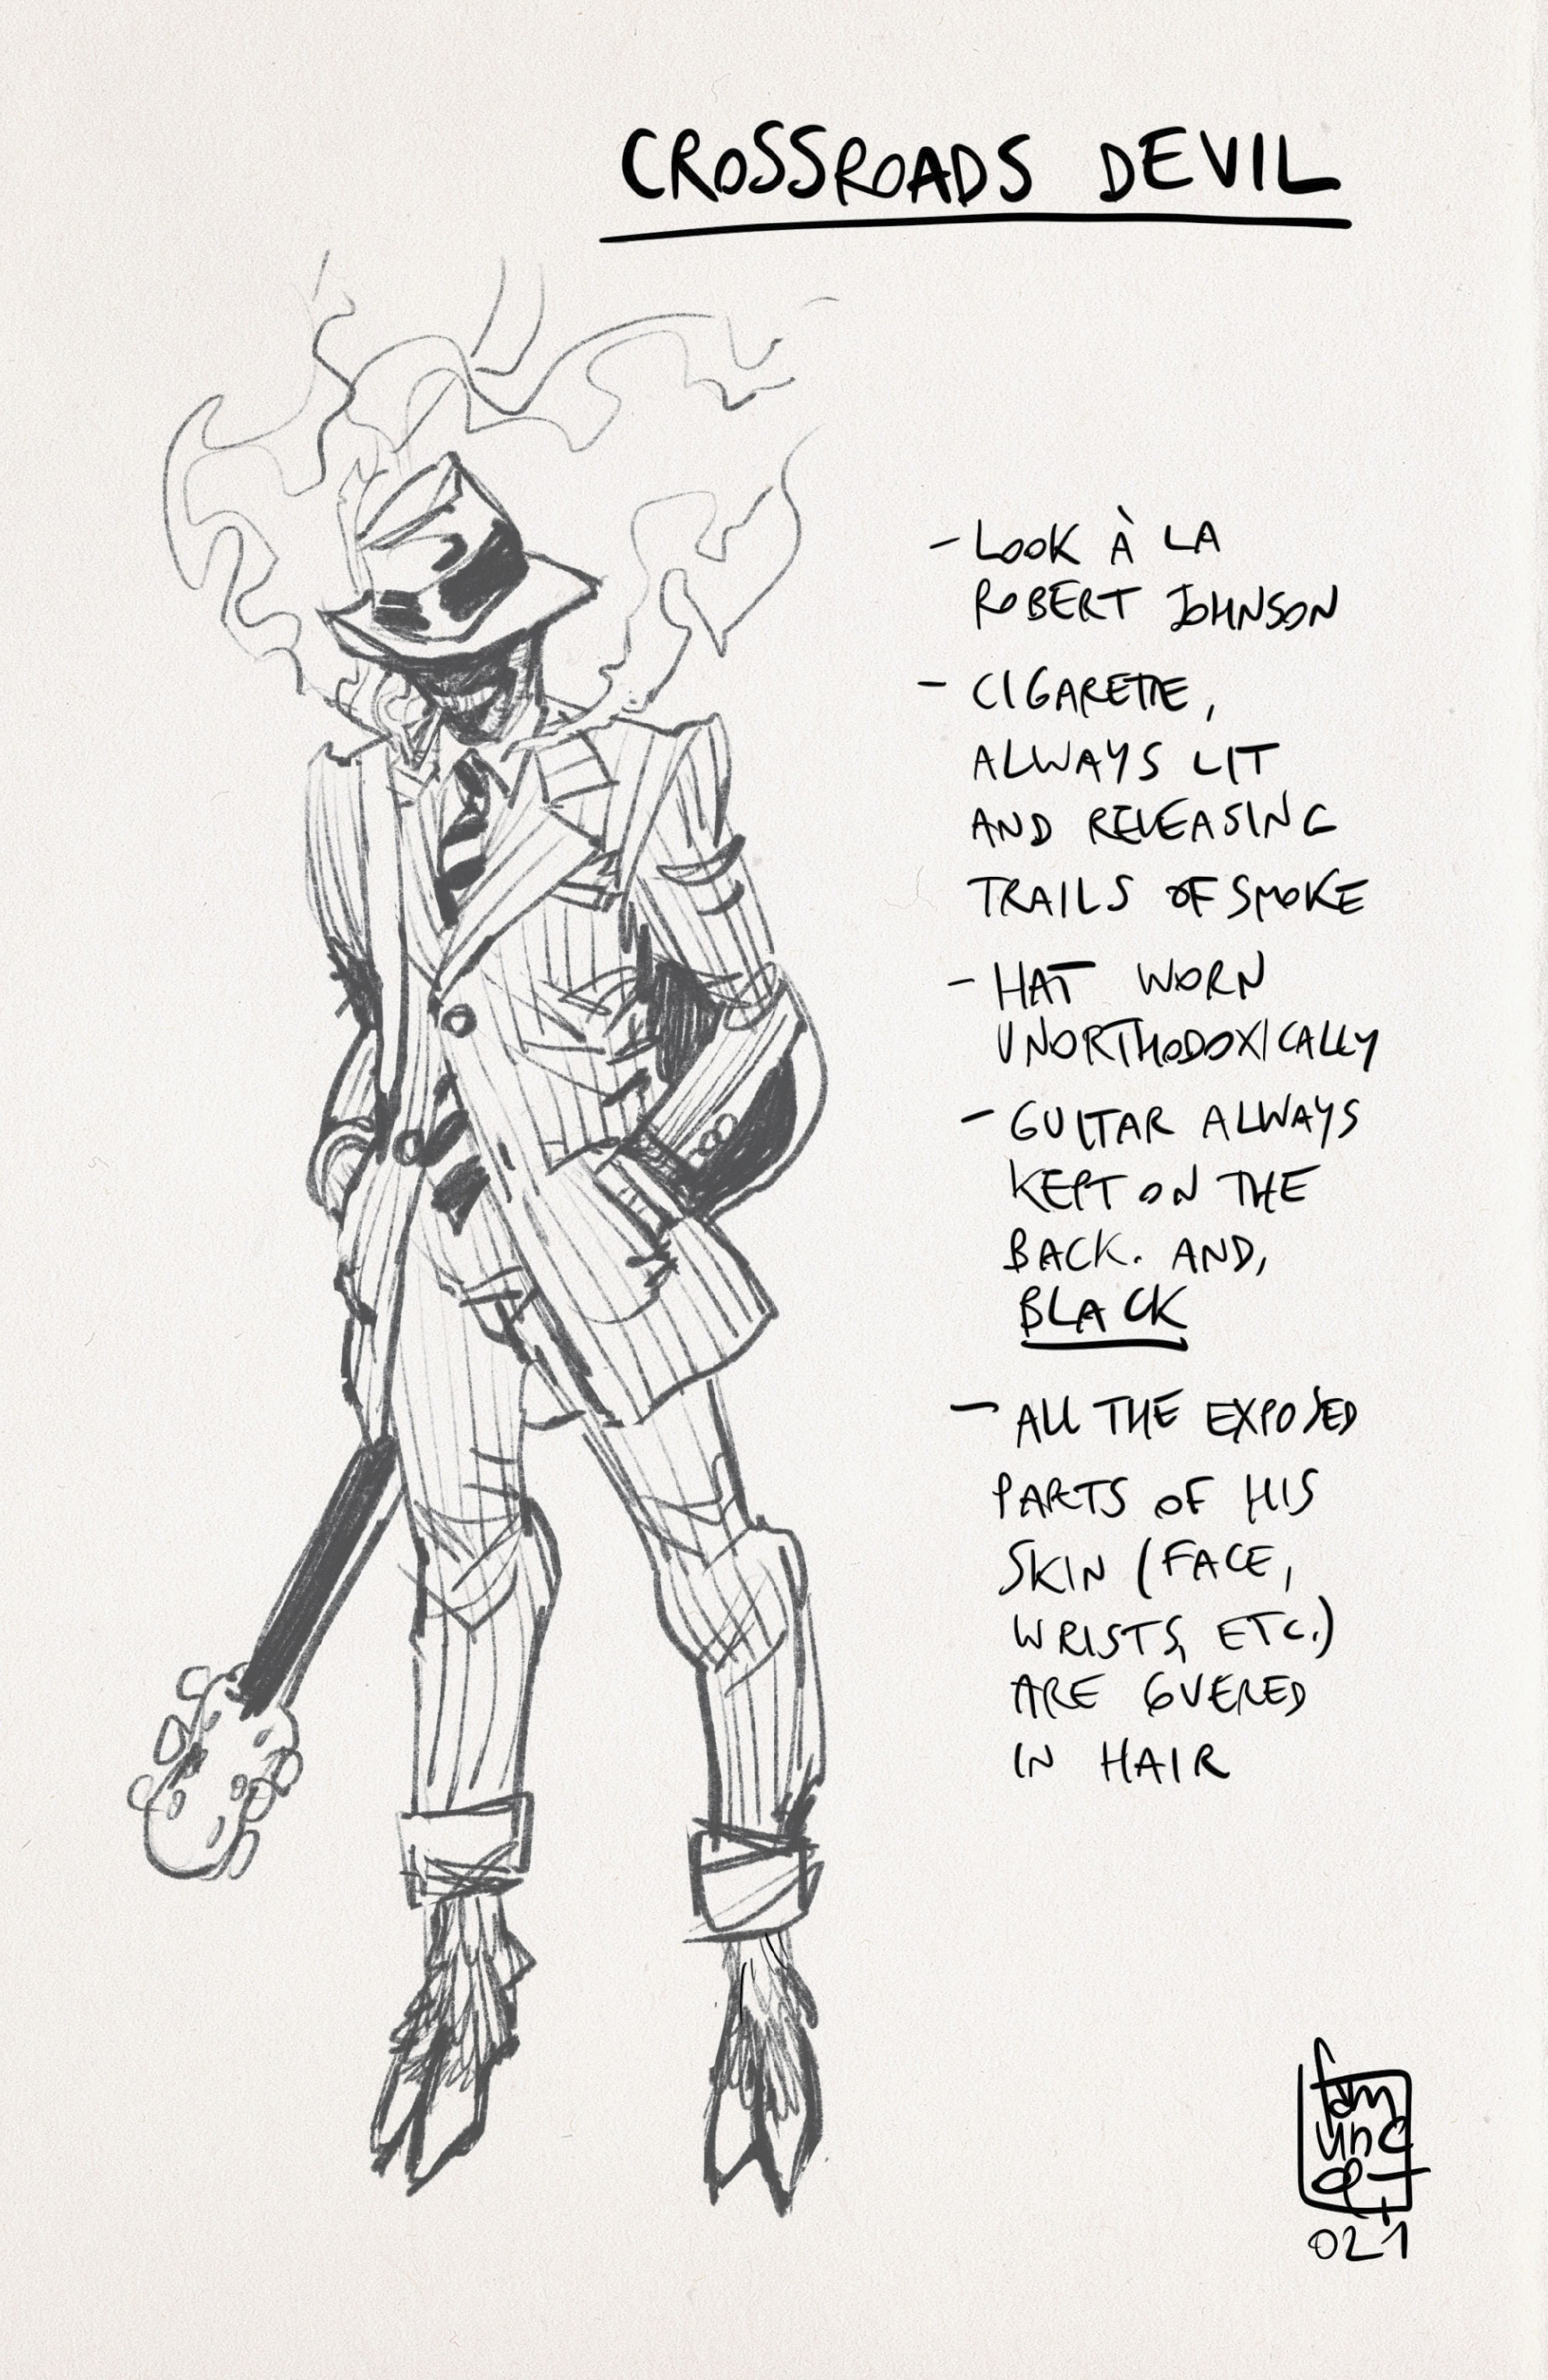 CROSSROADS DEVIL
- LOOK À LA
ROBERT JOHNSON
- CIGARETTE,
ALWAYS LIT
AND RELEASING
TRAILS OF SMOKE
- HAT WORN
UNORTHODOXICALLY
- GUITAR ALWAYS
KEPT ON THE
BACK. AND,
BLACK
- ALL THE EXPOSED
PARTS OF HIS
SKIN (FACE,
WRISTS, ETC.)
ARE COVERED
IN HAIR
021